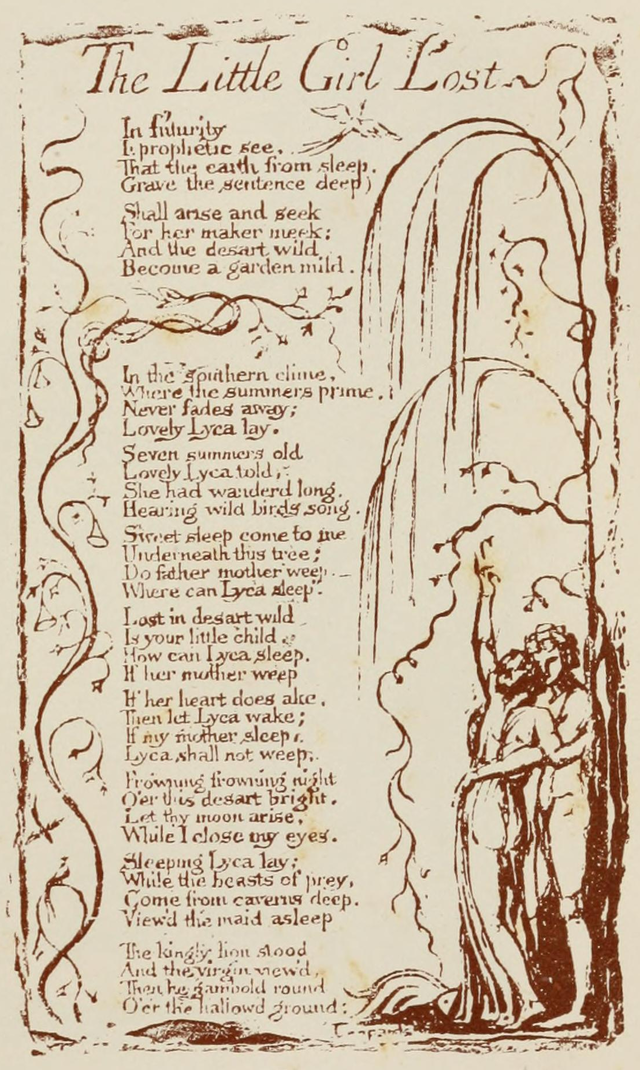 The Little Girl Lost
In futurity
I prophetic see.
That the earth from sleep.
(Grave the sentence deep)
Shall arise and seek
For her maker meek:
And the desart wild
Become a garden mild.
In the southern clime,
Where the summers prime,
Never fades away;
Lovely Lyca lay.
Seven summers old
Lovely Lyca told,
She had wanderd long.
Hearing wild birds song.
Sweet sleep come to me
Underneath this tree;
Do father mother weep.
Where can Lyca sleep.
Lost in desart wild
Is your little child.
How can Lyca sleep.
If her mother weep
If her heart does ake.
Then let Lyca wake;
If my mother sleep,
Lyca shall not weep.
Frowning frowning night
O'er this desart bright.
Let thy moon arise,
While I close my eyes.
Sleeping Lyca lay;
While the beasts of prey,
Come from caverns deep.
View'd the maid asleep
The kingly lion stood
And the virgin view'd
Then he gambold round
O'er the hallowd ground: